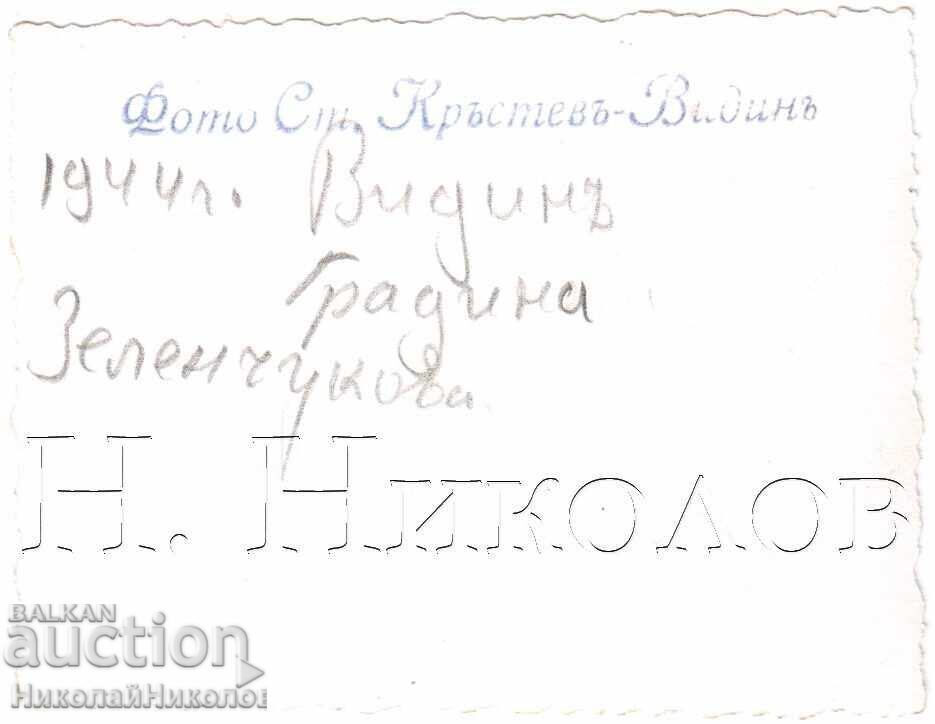 Фото Ст. Кръстевъ-Видинъ
1944г. Видинъ
Градина
Зеленчукова
Н. Николов
BALKAN
auction
НиколайНиколов